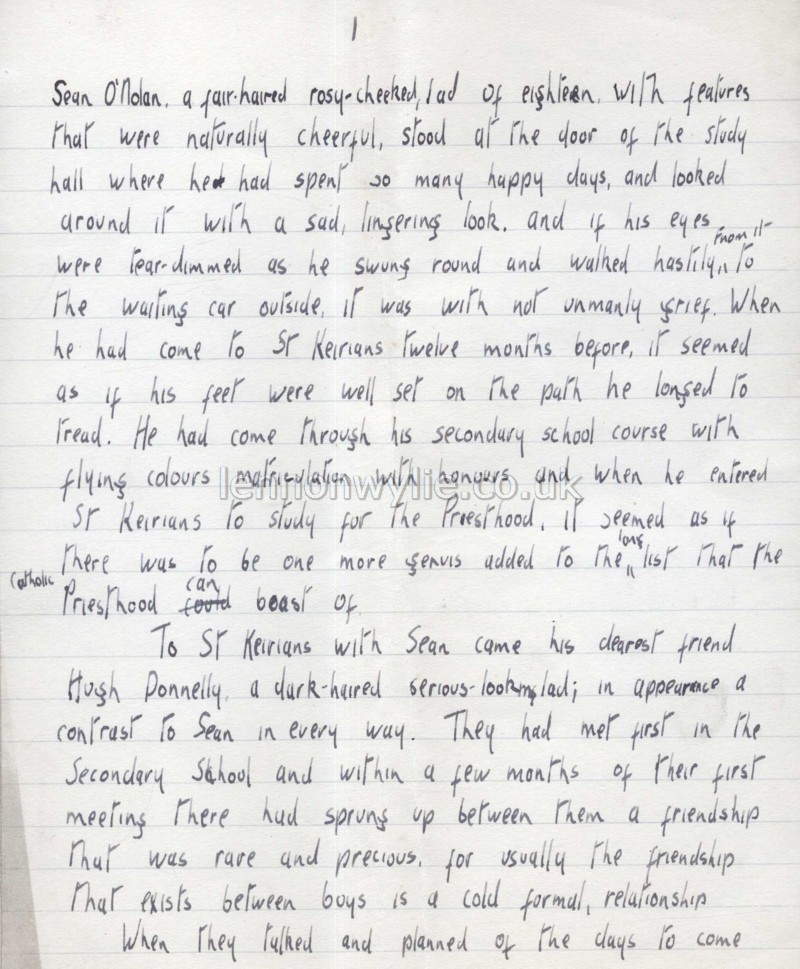 1
Sean O'Nolan, a fair-haired rosy-cheeked, lad of eighteen. with features
that were naturally cheerful, stood at the door of the study
hall where he had spent so many happy days, and looked
around it with a sad, lingering look. and if his eyes
were tear-dimmed as he swung round and walked hastily from it to
the waiting car outside, it was with not unmanly grief. When
he had come to St Keirians twelve months before, it seemed
as if his feet were well set on the path he longed to
tread. He had come through his secondary school course with
flying colours matriculation with honours and when he entered
lennonwylie.co.uk
St Keirians to study for the Priesthood, it seemed as if
there was to be one more genius added to the long list that the
Catholic Priesthood could can boast of.
To St Keirians with Sean came his dearest friend
Hugh Donnelly, a dark-haired serious-looking lad; in appearance a
contrast to Sean in every way. They had met first in the
Secondary School and within a few months of their first
meeting there had sprung up between them a friendship
that was rare and precious, for usually the friendship
that exists between boys is a cold formal, relationship
When they talked and planned of the days to come